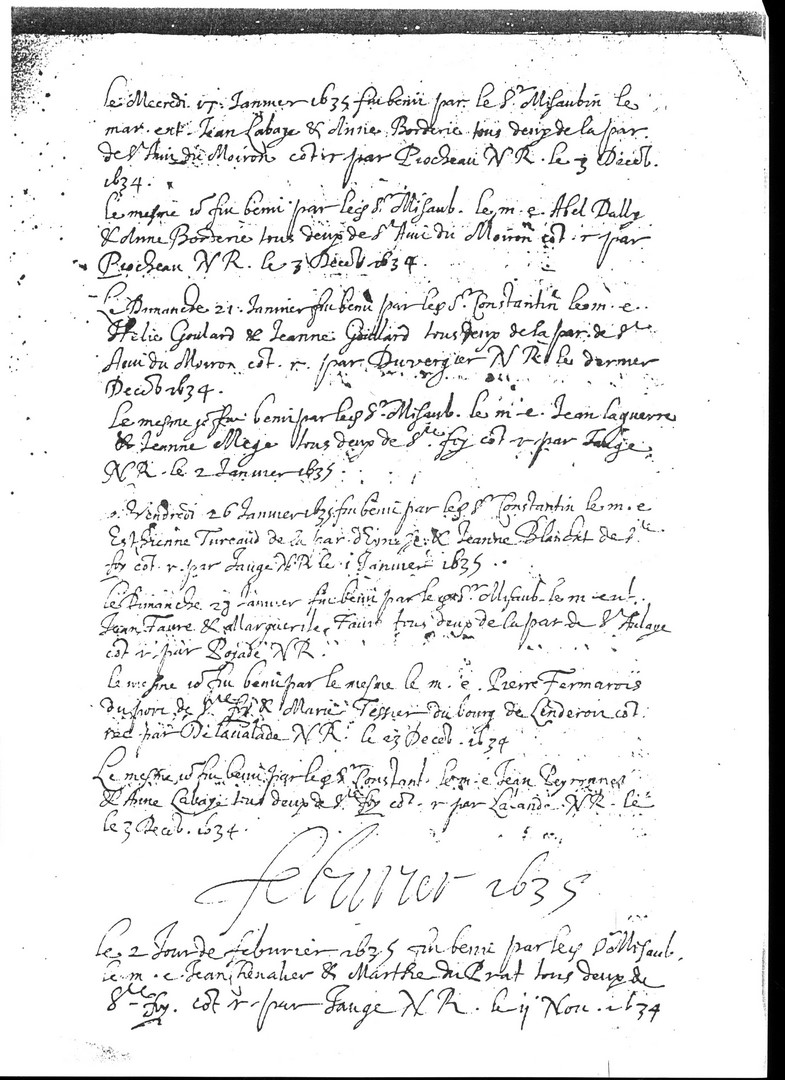 le Mecredi 17. Janvier 1635 fut beni par le Sr Misaubin le
mar. ent. Jean Labaye & Anne Borderie tous deux de la par.
de St Avit du Moiron cot r par Piocheau N R. le 3 Decēb.
1634.
le mesme io fut beni par led Sr Misaub. le m. e Abel Dally
& Anne Borderie tous deux de St Avit du Moiron cot. r par
Piocheau N R. le 3 Decēb 1634.
Le Dimanche 21. Janvier fut beni par led Sr Constantin le m. e.
Helie Goulard & Jeanne Goulard tous deux de la par. de St
Avit du Moiron cot. r. par Duvergier N R le dernier
Decēb 1634.
le mesme io fut beni par led Sr Misaub. le m. e. Jean Laguerre
& Jeanne Mege tous deux de Ste foy cot r par Jauge
N R. le 2 Janvier 1635.
Vendredi 26 Janvier 1635 fut beni par led Sr Constantin le m. e
Esthienne Tureaud de la par. & Jeanne Blanchet de Ste
foy cot. r. par Jauge N R le 1 Janvier 1635.
le Dimanche Janvier fut beni par led Sr Misaub. le m ent.
Jean Faure & Marguerite Faure tous deux de la par de St Aulaye
cot r. par N R.
le mesme io fut beni par le mesme le m. e. Pierre Fermarois
du port de Ste foy & Marie Tessier du bourg de cot.
rec par Delavalade N R. le 23 Decēb. 1634
Le mesme io fut beni par led Sr Constant. le m. e Jean Peyronnet
& Anne Labaye tous deux de Ste foy cot. r par N R. le
le 3 Decēb. 1634.
feburier 1635
le 2 Jour de feburier 1635 fut beni par led Sr Misaub.
le m. e Jean Chevalier & Marthe du Prat tous deux de
Ste foy. cot r par Jauge N R. le ij Nov. 1634